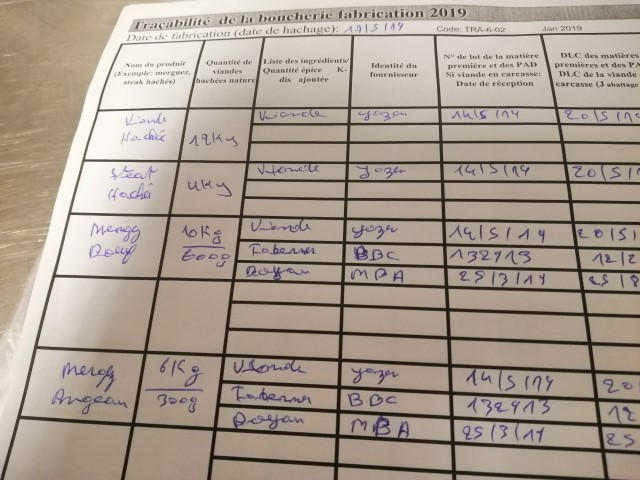 Traçabilité de la boucherie fabrication 2019
Date de fabrication (date de hachage): 17/5/19 Code: TRA-6-02 Jan 2019
Nom du produit (Exemple: merguez, steak hachés)
Quantité de viandes hachées nature
Liste des ingrédients/ Quantité épice K-dis ajoutée
Identité du fournisseur
N° de lot de la matière première et des PAD Si viande en carcasse: Date de réception
DLC des matières premières et des PAD DLC de la viande carcasse (J abattage
Viande Hachée 19Kg Viande yozer 14/5/19 20/5/19
Steak Haché 4Kg Viande yozer 14/5/19 20/5/19
Mergz Boeuf 10Kg 600g Viande yozer 14/5/19 20/5/
BBC 132913 12/2
Boyau MBA 25/3/19 25/8
Mergz 6Kg 300g Viande yozer 14/5/19 20
BBC 132913 12
Boyau MBA 25/3/19 25